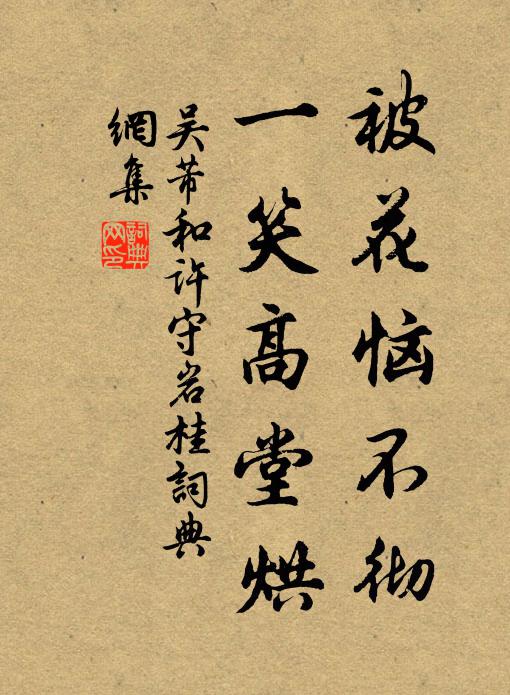 被花恼不彻
一笑高堂烘
吴芾和许守岩桂詞典
網集
詞典
网印